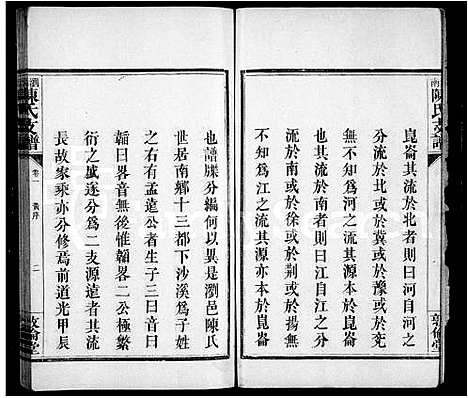 陳氏支譜
崑崙其流於北者則曰河自河之
分流於北或於冀或於豫或於兗
無不知為河之流其源實本於崑
崙其流於南者則曰江自江之分
流於南或於徐或於荊或於揚無
不知為江之流其源亦本於崑崙
敦倫堂
也譜牒分編何以異是瀏邑陳氏
世居南鄉十三都下沙溪為子姓
之右有孟遠公者生子三曰音曰
韜曰畧音無後惟韜畧二公極繁
衍之盛遂分為二支源遠者其流
長故家乘亦分修焉前道光甲辰
陳氏支譜
卷一
黃序
二
敦倫堂